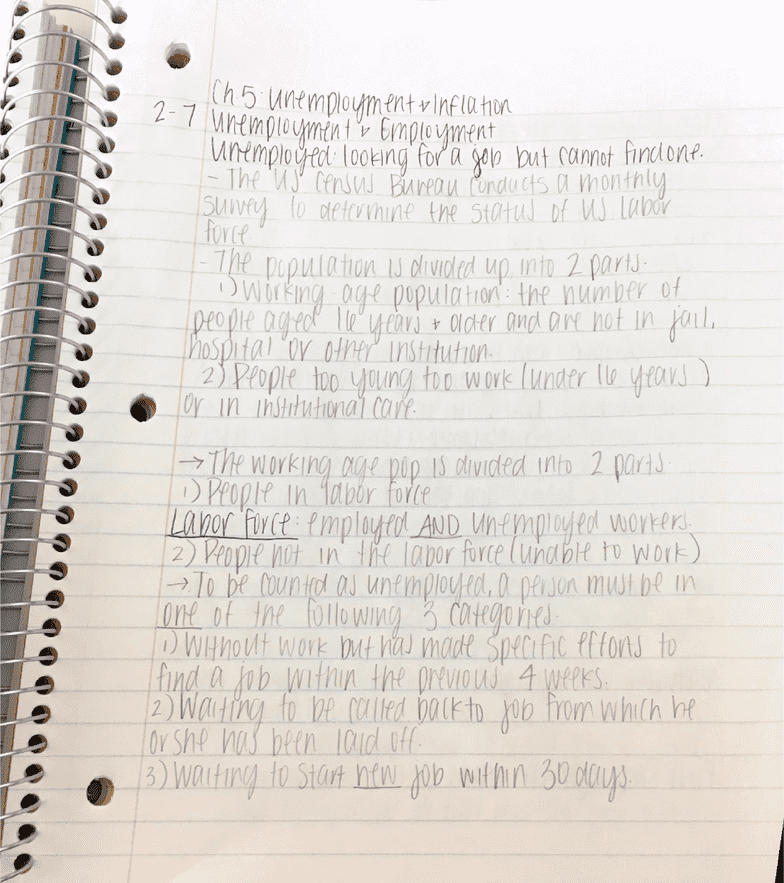 Ch 5: Unemployment & Inflation
2-7 Unemployment & Employment
Unemployed: looking for a job but cannot find one.
- The US Census Bureau conducts a monthly
survey to determine the status of US labor
force
- The population is divided up into 2 parts.
1) Working-age population: the number of
people aged 16 years + older and are not in jail,
hospital or other institution.
2) People too young too work (under 16 years)
or in institutional care.
→ The working age pop is divided into 2 parts.
1) People in labor force
Labor Force: employed AND unemployed workers.
2) People not in the labor force (unable to work)
→ To be counted as unemployed, a person must be in
one of the following 3 categories.
1) Without work but has made specific efforts to
find a job within the previous 4 weeks.
2) Waiting to be called back to job from which he
or she has been laid off.
3) Waiting to start new job within 30 days.